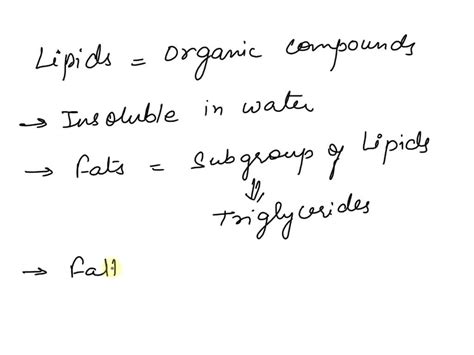 Lipids = organic compounds
→ Insoluble in water
→ Fats = Subgroup of Lipids
⇓
Triglycerides
→ Fatt